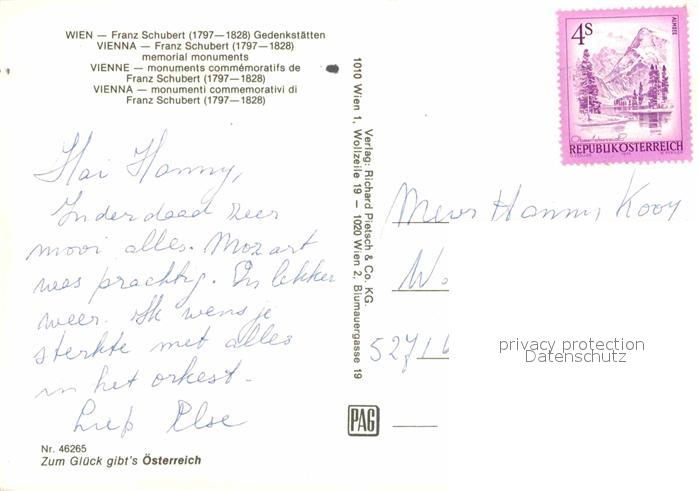 WIEN — Franz Schubert (1797—1828) Gedenkstätten
VIENNA — Franz Schubert (1797—1828)
memorial monuments
VIENNE — monuments commémoratifs de
Franz Schubert (1797—1828)
VIENNA — monumenti commemorativi di
Franz Schubert (1797—1828)
Hai Hanny,
Inderdaad zeer
mooi alles. Mozart
was prachtig. En lekker
weer. Ik wens je
sterkte met alles
in het orkest.
Liefs Else
Nr. 46265
Zum Glück gibt's Österreich
Verlag: Richard Pietsch & Co. KG.
1010 Wien 1, Wollzeile 19 — 1020 Wien 2, Blumauergasse 19
PAG
4S
ALMSEE
REPUBLIK ÖSTERREICH
Mevr Hanny Kooy
W.
527
privacy protection
Datenschutz